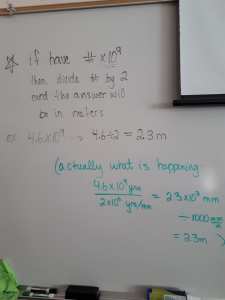 * if have # x10⁹
then divide # by 2
and the answer will
be in meters
ex 4.6x10⁹ → 4.6÷2 = 2.3m
(actually what is happening:
4.6x10⁹ yrs / 2x10⁶ yrs/mm = 2.3x10³ mm
÷1000 mm/m
= 2.3m )